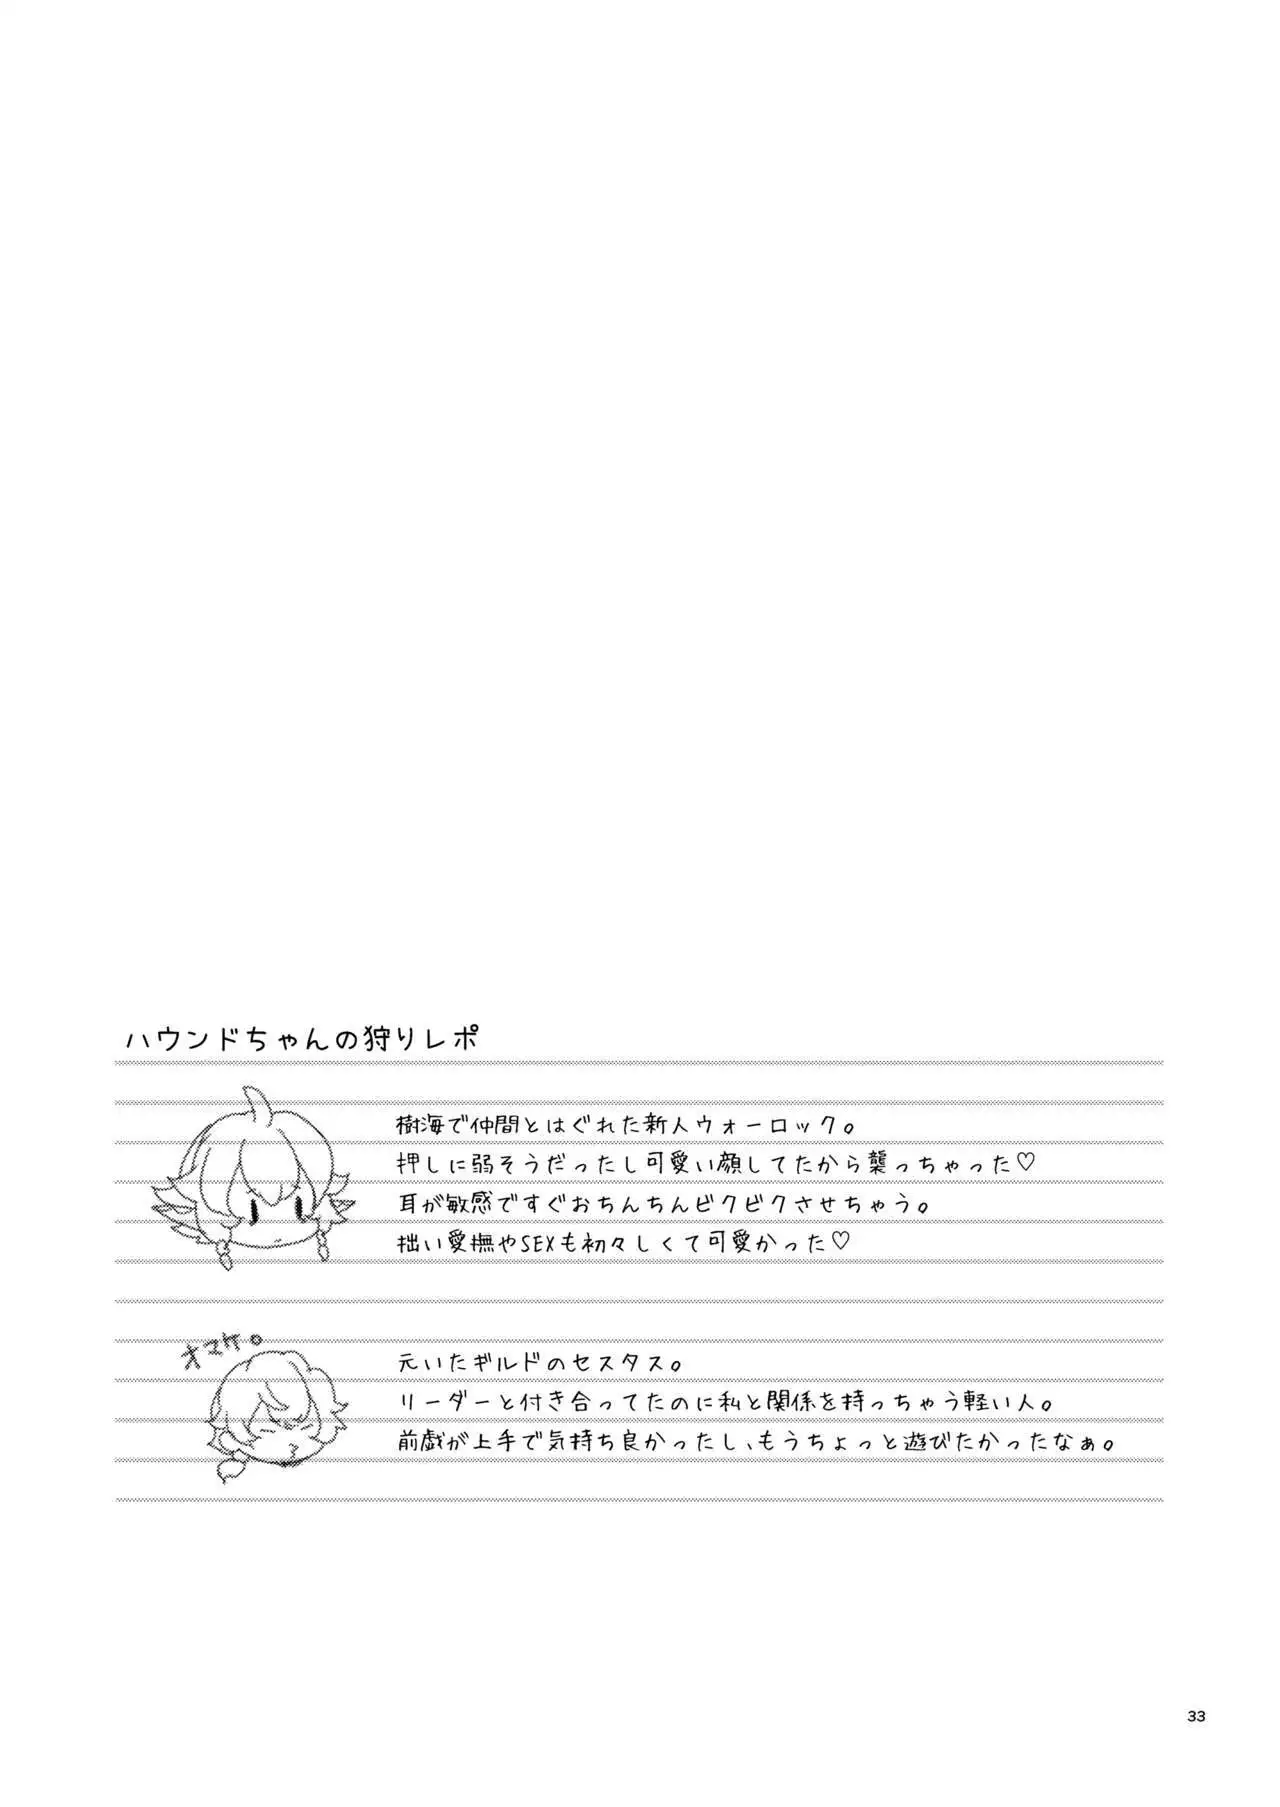 ハウンドちゃんの狩りレポ
樹海で仲間とはぐれた新人ウォーロック。
押しに弱そうだったし可愛い顔してたから襲っちゃった♡
耳が敏感ですぐおちんちんビクビクさせちゃう。
拙い愛撫やSEXも初々しくて可愛かった♡
オマケ。
元いたギルドのセスタス。
リーダーと付き合ってたのに私と関係を持っちゃう軽い人。
前戯が上手で気持ち良かったし、もうちょっと遊びたかったなぁ。
33